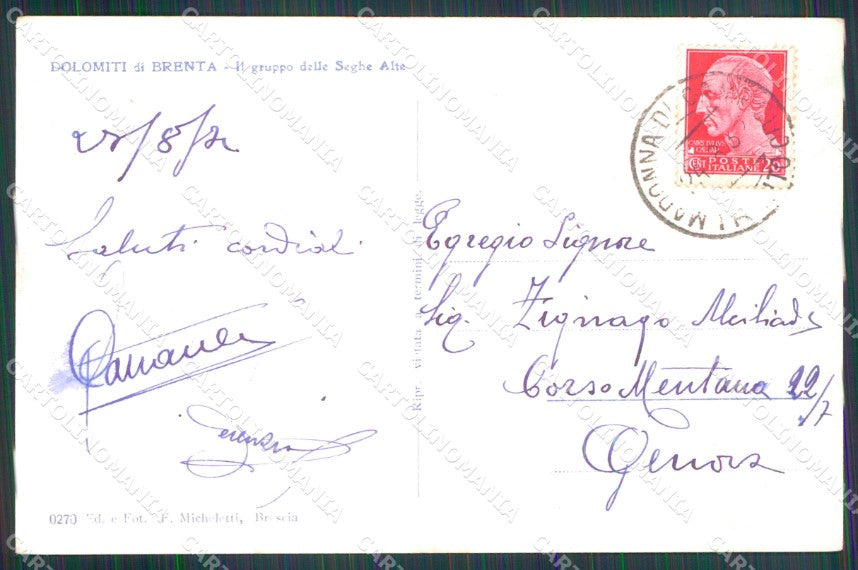 DOLOMITI di BRENTA - Il gruppo delle Seghe Alte
Saluti cordiali
0270 Ed. e Fot. F. Micheletti, Brescia
Ripr. vietata a termini di legge
MADONNA DI
POSTE
ITALIANE
CENT 20
Egregio Signore
Sig. Zignago
Corso Mentana 22/7
Genova
CARTOLINOMANIA